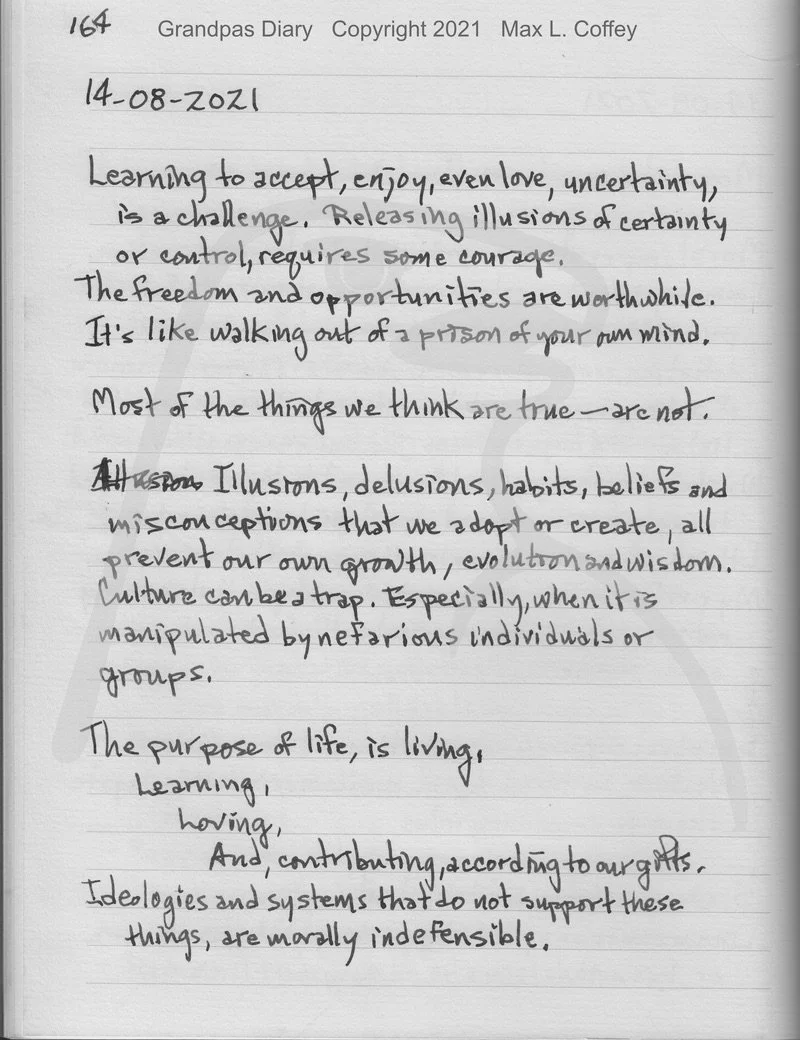 164 Grandpas Diary Copyright 2021 Max L. Coffey
14-08-2021
Learning to accept, enjoy, even love, uncertainty,
is a challenge. Releasing illusions of certainty
or control, requires some courage.
The freedom and opportunities are worthwhile.
It's like walking out of a prison of your own mind.
Most of the things we think are true — are not.
Illusions, delusions, habits, beliefs and
misconceptions that we adopt or create, all
prevent our own growth, evolution and wisdom.
Culture can be a trap. Especially, when it is
manipulated by nefarious individuals or
groups.
The purpose of life, is living,
Learning,
Loving,
And, contributing, according to our gifts.
Ideologies and systems that do not support these
things, are morally indefensible.